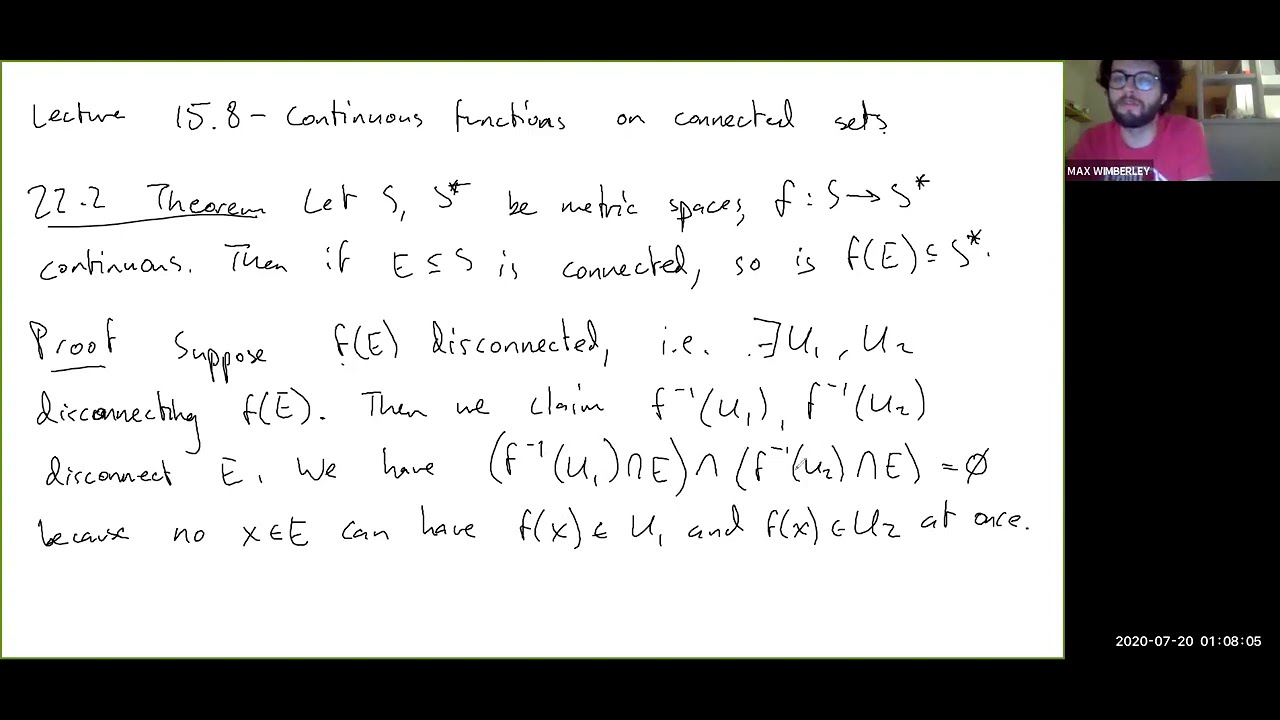 Lecture 15.8 - Continuous functions on connected sets.
22.2 Theorem Let S, S* be metric spaces, f : S → S*
continuous. Then if E ⊆ S is connected, so is f(E) ⊆ S*.
Proof Suppose f(E) disconnected, i.e. ∃ U₁, U₂
disconnecting f(E). Then we claim f⁻¹(U₁), f⁻¹(U₂)
disconnect E. We have (f⁻¹(U₁) ∩ E) ∩ (f⁻¹(U₂) ∩ E) = ∅
because no x ∈ E can have f(x) ∈ U₁ and f(x) ∈ U₂ at once.
MAX WIMBERLEY
2020-07-20 01:08:05